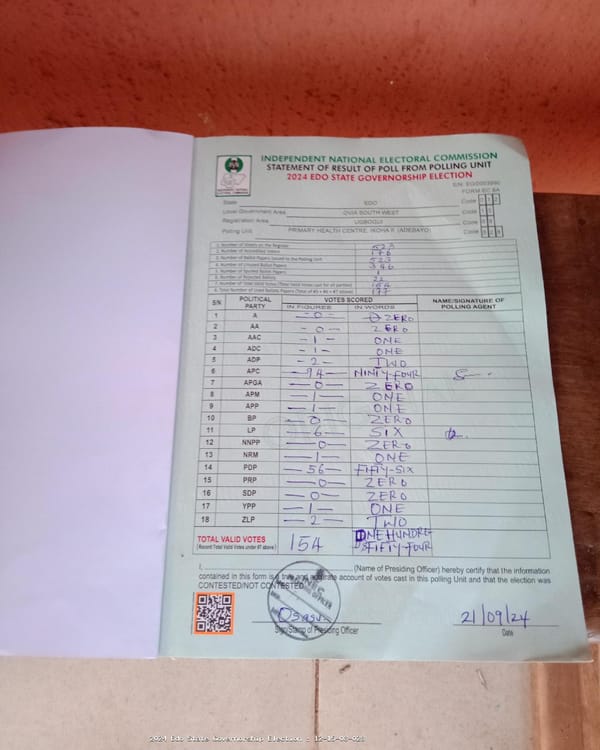 INDEPENDENT NATIONAL ELECTORAL COMMISSION
STATEMENT OF RESULT OF POLL FROM POLLING UNIT
2024 EDO STATE GOVERNORSHIP ELECTION
FORM EC 8A
State EDO Code
Local Government Area OVIA SOUTH WEST Code
Registration Area UGBOGUI Code
Polling Unit PRIMARY HEALTH CENTRE, IKOHA II (ADEBAYO) Code
1. Number of Voters on the Register 523
2. Number of Accredited Voters 178
3. Number of Ballot Papers Issued to the Polling Unit 523
4. Number of Unused Ballot Papers 346
5. Number of Spoiled Ballot Papers 1
6. Number of Rejected Ballots 22
7. Number of Total Valid Votes (Total Valid Votes cast for all parties) 154
8. Total Number of Used Ballot Papers (Total of #5 + #6 + #7 above) 177
S/N POLITICAL PARTY VOTES SCORED NAME/SIGNATURE OF POLLING AGENT
IN FIGURES IN WORDS
1 A —0— ZERO
2 AA —0— ZERO
3 AAC —1— ONE
4 ADC —1— ONE
5 ADP —2— TWO
6 APC —94— NINTY-FOUR
7 APGA —0— ZERO
8 APM —1— ONE
9 APP —1— ONE
10 BP —0— ZERO
11 LP —6— SIX
12 NNPP —0— ZERO
13 NRM —1— ONE
14 PDP —56— FIFTY-SIX
15 PRP —0— ZERO
16 SDP —0— ZERO
17 YPP —1— ONE
18 ZLP —2— TWO
TOTAL VALID VOTES 154 ONE HUNDRE
(Record Total Valid Votes under #7 above) FIFTY-FOUR
I, (Name of Presiding Officer) hereby certify that the information
contained in this form is a true and accurate account of votes cast in this polling Unit and that the election was
CONTESTED/NOT CONTESTED
Osasu 21/09/24
Sign/Stamp of Presiding Officer Date
2024 Edo State Governorship Election